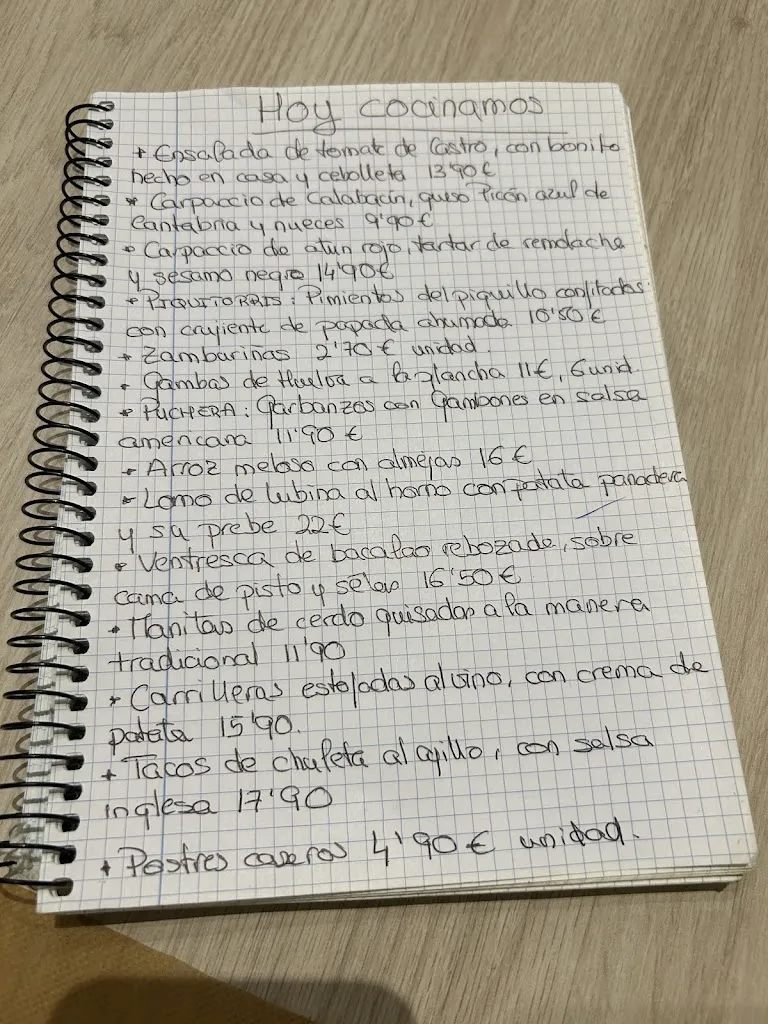 Hoy cocinamos
* Ensalada de tomate de Castro, con bonito
hecho en casa y cebolleta 13'90€
* Carpaccio de Calabacín, queso Picón azul de
Cantabria y nueces 9'90€
* Carpaccio de atun rojo, tartar de remolacha
y sesamo negro 14'90€
* PIQUITORRIS: Pimientos del piquillo confitados
con crujiente de papada ahumada 10'50 €
* Zamburiñas 2'70 € unidad.
* Gambas de Huelva a la plancha 11€, 6 unid.
* PUCHERA: Garbanzos con Gambones en salsa
americana 11'90 €
* Arroz meloso con almejas 16 €
* Lomo de lubina al horno con patata panadera
y su prebe 22€
* Ventresca de bacalao rebozado, sobre
cama de pisto y setas 16'50€
* Manitas de cerdo guisadas a la manera
tradicional 11'90
* Carrilleras estofadas al vino, con crema de
patata 15'90.
* Tacos de chuleta al ajillo, con salsa
inglesa 17'90
* Postres caseros 4'90€ unidad.